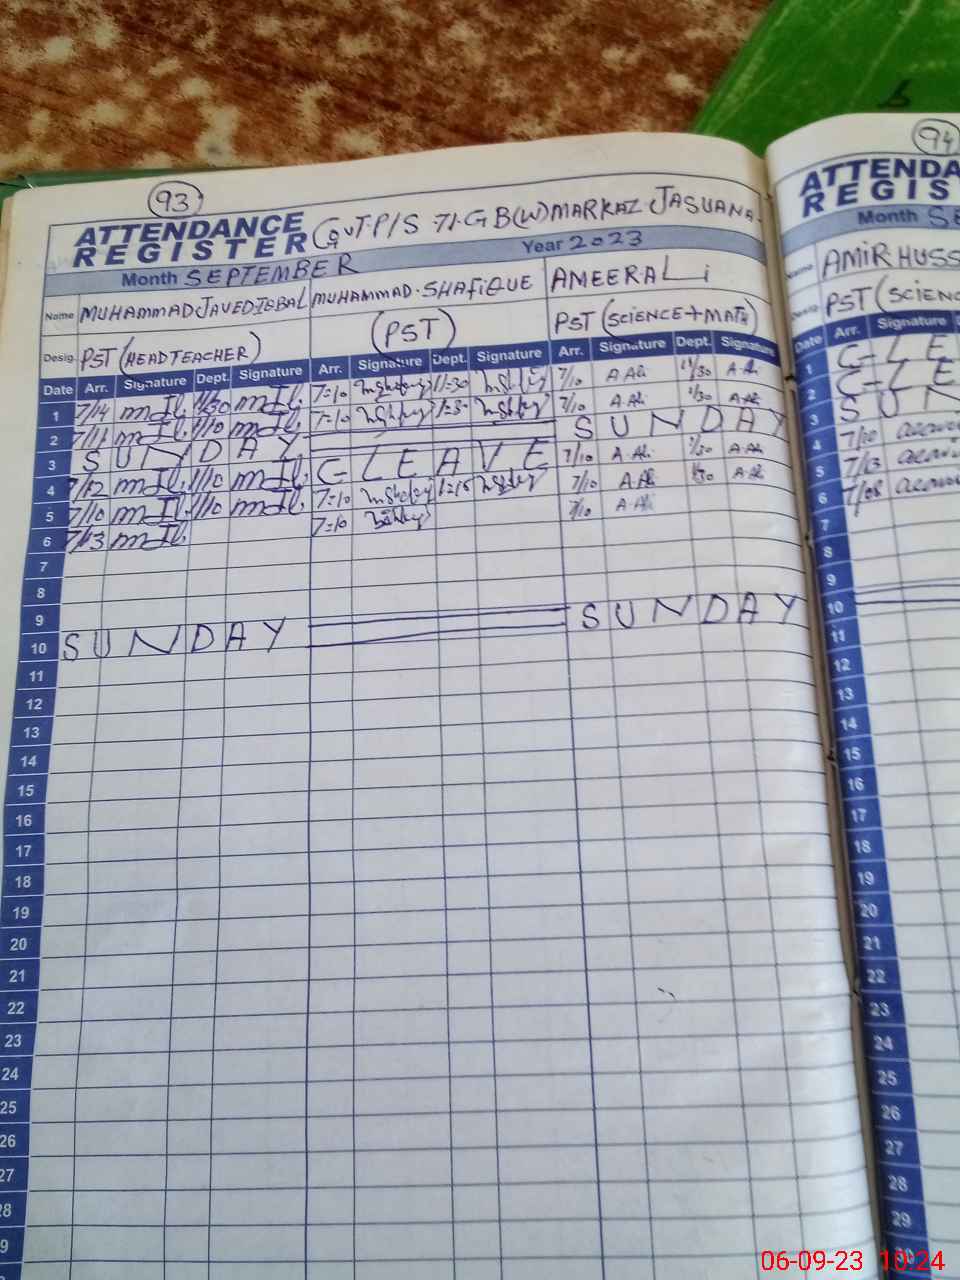 93
ATTENDANCE REGISTER
GovT. P/S 71-GB(W) MARKAZ JASUANA
Month SEPTEMBER Year 2023
Name MUHAMMAD JAVED IQBAL MUHAMMAD SHAFIQUE AMEER ALi
Desig. PST (HEADTEACHER) (PST) PST (SCIENCE+MATH)
Date Arr. Signature Dept. Signature Arr. Signature Dept. Signature Arr. Signature Dept. Signature
1 7/14 11/30 7=10 11=30 7/10 A.Ali 11/30 A.Ali
2 7/11 1/10 7=10 7/10 A.Ali 11/30 A.Ali
3 SUNDAY SUNDAY
4 7/12 1/10 C-LEAVE 7/10 A.Ali 1/30 A.Ali
5 7/10 1/10 7=10 1=15 7/10 A.Ali 1/30 A.Ali
6 7/13 7=10 7/10 A.Ali
7
8
9
10 SUNDAY SUNDAY
11
12
13
14
15
16
17
18
19
20
21
22
23
24
25
26
27
28
9
94
ATTENDA
REGIS
Month SE
Name AMIR HUSS
Desig. PST (SCIENC
Date Arr. Signature
1 C-LE
2 C-LE
3 SUN
4 7/10
5 7/13
6 7/08
7
8
9
10
11
12
13
14
15
16
17
18
19
20
21
22
23
24
25
26
27
28
29
30
06-09-23 10:24